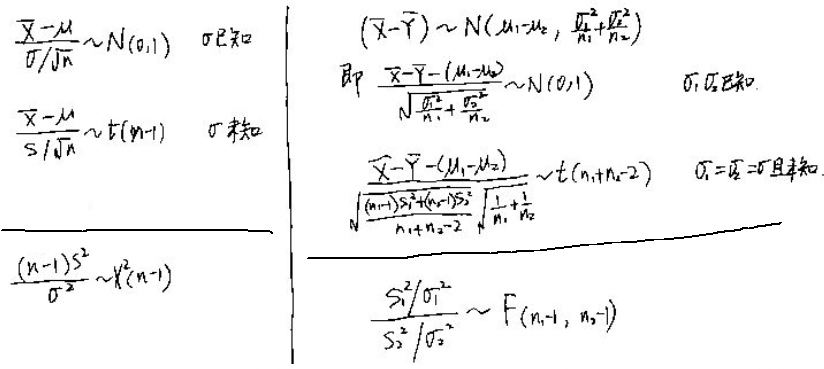 (X̄-μ)/(σ/√n) ~ N(0,1) σ已知
(X̄-μ)/(S/√n) ~ t(n-1) σ未知
(n-1)S²/σ² ~ χ²(n-1)
(X̄-Ȳ) ~ N(μ₁-μ₂, σ₁²/n₁+σ₂²/n₂)
即 (X̄-Ȳ-(μ₁-μ₂))/√(σ₁²/n₁+σ₂²/n₂) ~ N(0,1) σ₁σ₂已知.
(X̄-Ȳ-(μ₁-μ₂))/(√(((n₁-1)S₁²+(n₂-1)S₂²)/(n₁+n₂-2)) √(1/n₁+1/n₂)) ~ t(n₁+n₂-2) σ₁=σ₂=σ且未知.
(S₁²/σ₁²)/(S₂²/σ₂²) ~ F(n₁-1, n₂-1)